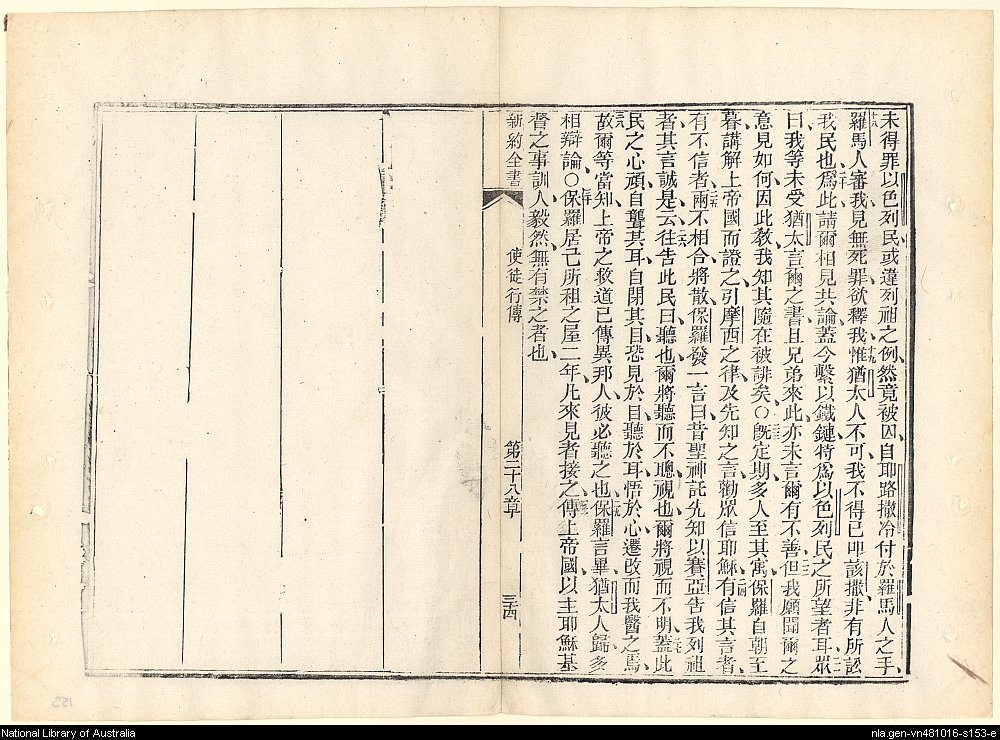 未得罪以色列民或違列祖之例、然竟被囚自耶路撒冷付於羅馬人之手、
十八羅馬人審我見無死罪欲釋我、十九惟猶太人不可我不得已叩該撒非有所訟
我民也、二十爲此請爾相見共論蓋今繫以鐵鏈特爲以色列民之所望者耳、二一眾
曰我等未受猶太言爾之書且兄弟來此亦未言爾有不善、二二但我願聞爾之
意見如何因此教我知其隨在被誹矣○二三旣定期多人至其寓保羅自朝至
暮講解上帝國而證之引摩西之律及先知之言勸眾信耶穌、二四有信其言者、
有不信者、二五兩不相合將散保羅發一言曰昔聖神託先知以賽亞告我列祖
者其言誠是、二六云往吿此民曰聽也爾將聽而不聰視也爾將視而不明、二七蓋此
民之心頑自聾其耳自閉其目恐見於目聽於耳悟於心遷改而我醫之焉、
二八故爾等當知上帝之救道已傳異邦人彼必聽之也、二九保羅言畢猶太人歸多
相辯論○三十保羅居己所租之屋二年凡來見者接之、三一傳上帝國以主耶穌基
督之事訓人毅然無有禁之者也、
新約全書 使徒行傳 第二十八章 三十四
National Library of Australia
nla.gen-vn481016-s153-e